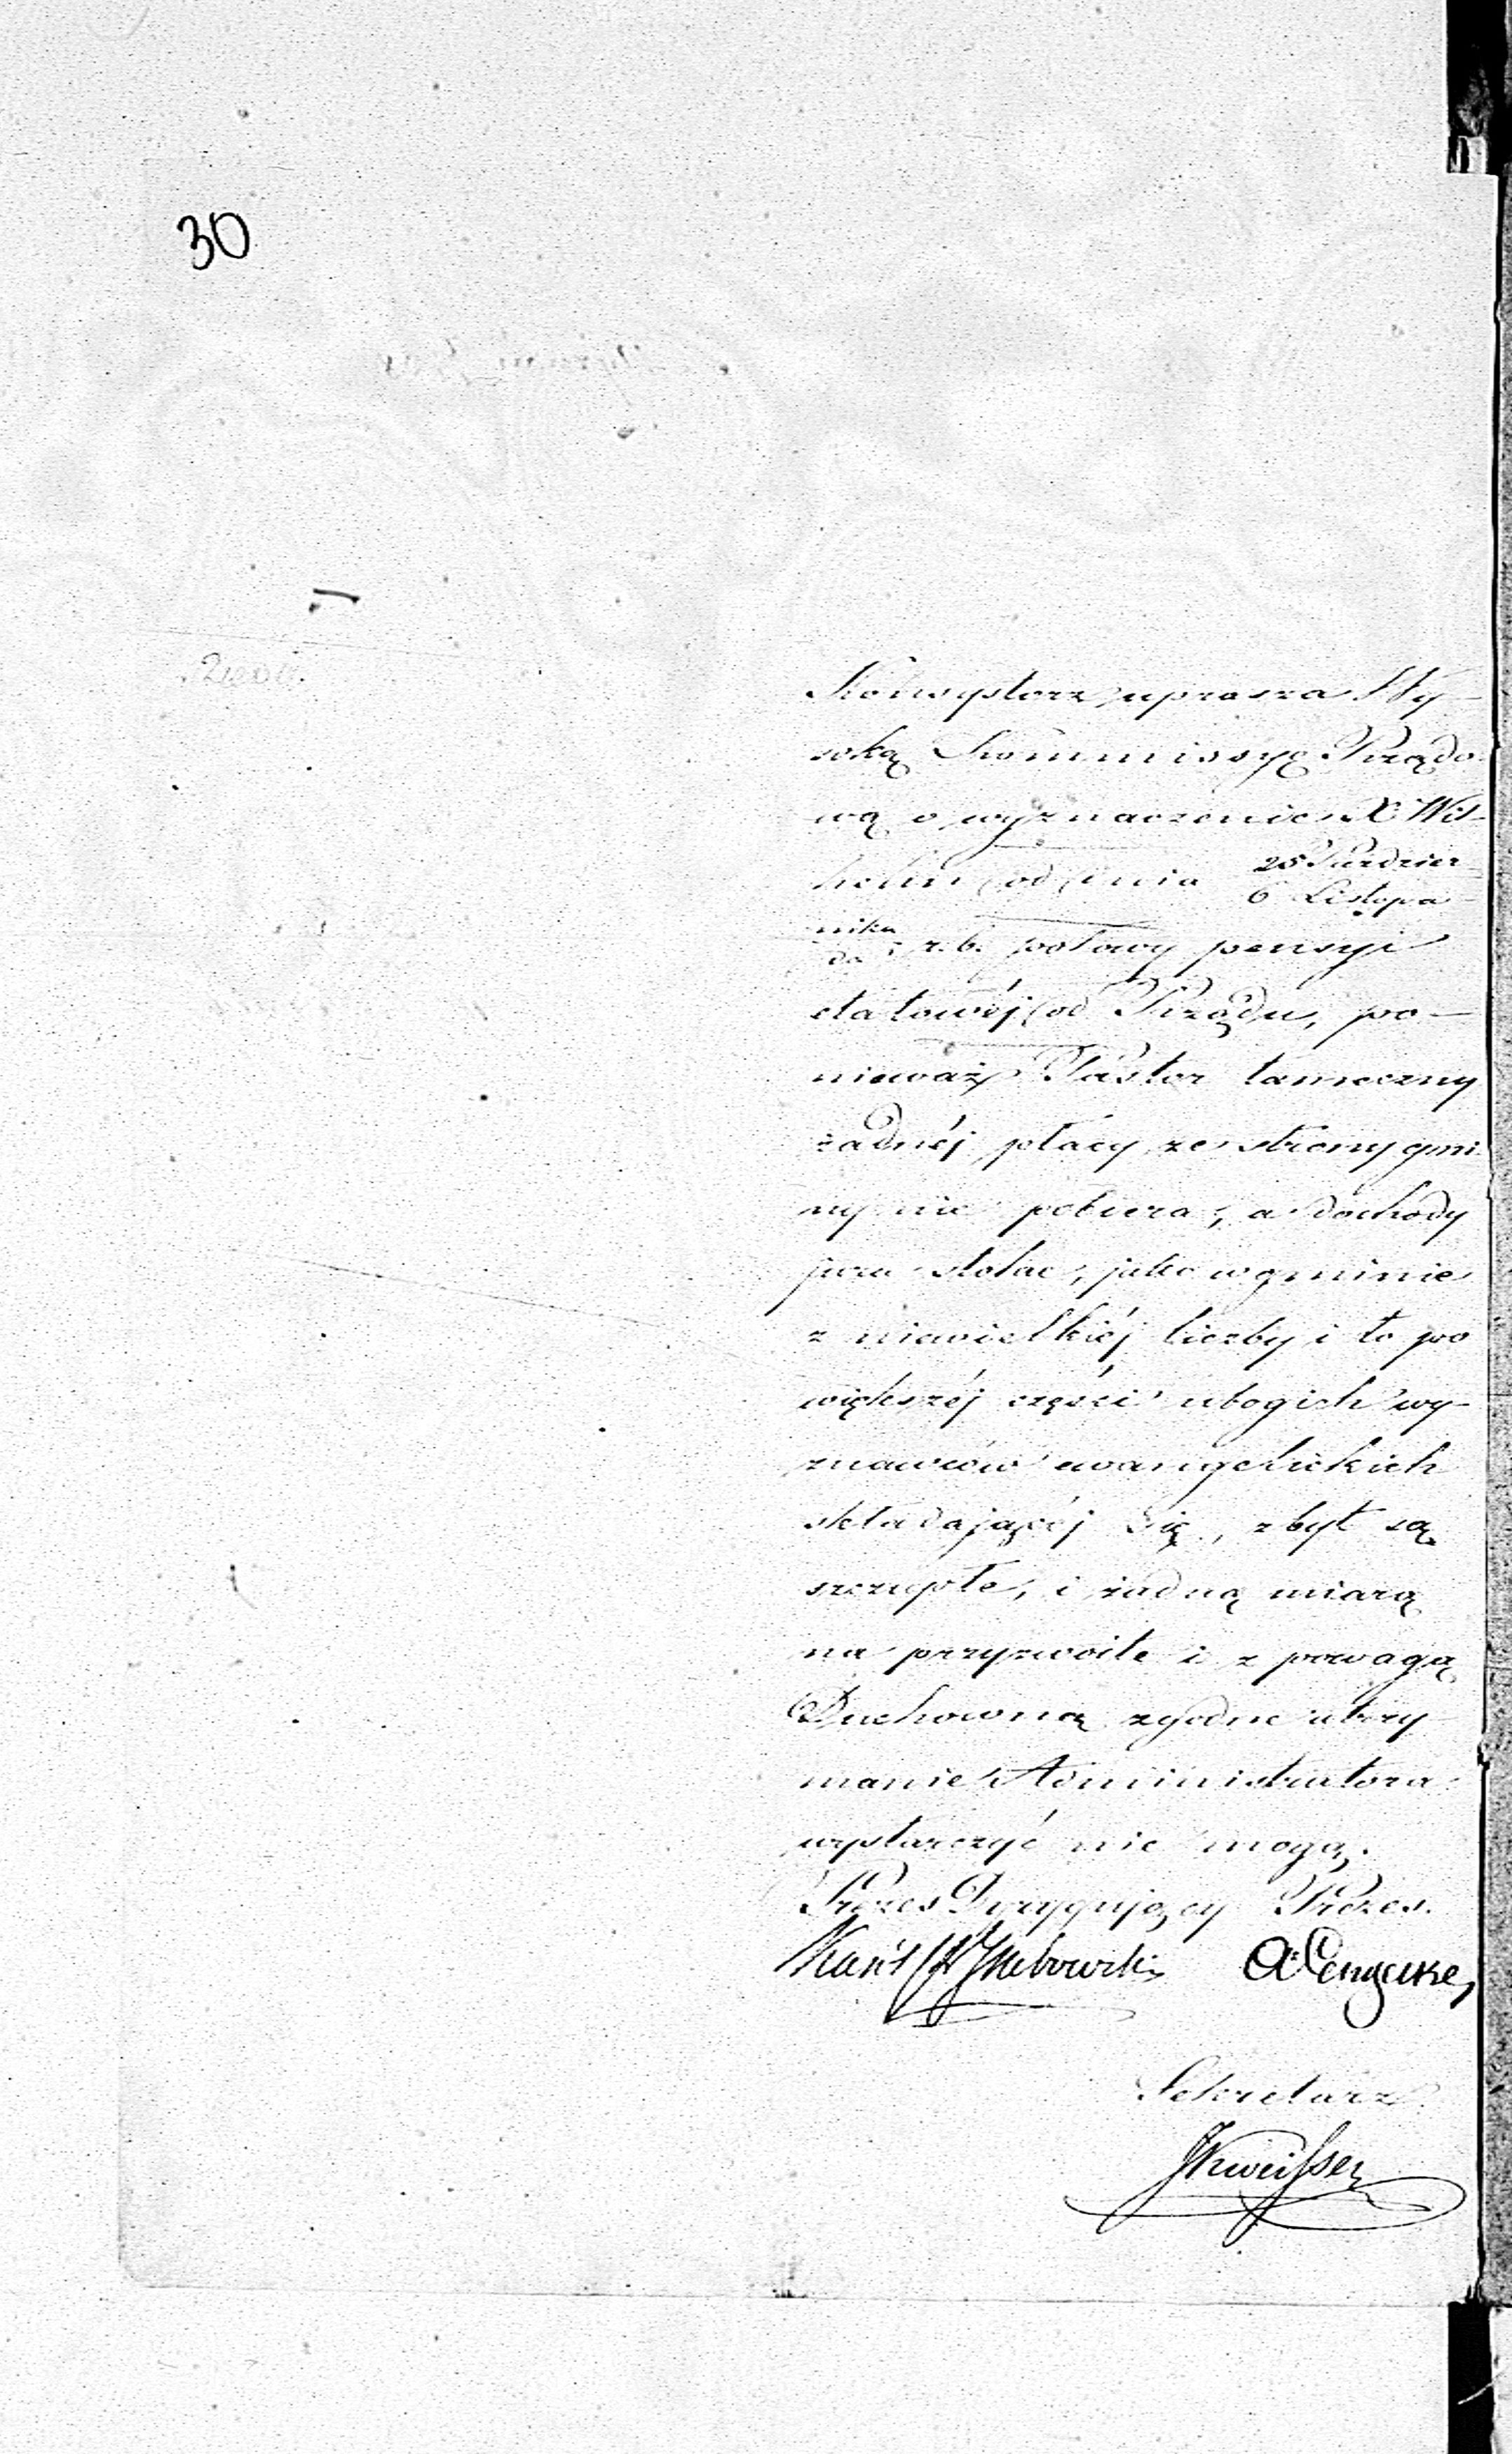 30
Konsystorz uprasza Wy-
soką Kommissyę Rządo-
wą o wyznaczenie X. Wil-
helm od dnia 25 Paździer-
6 Listopa-
nika
da r. b. połowy pensyi
etatowéj od Rządu, po-
nieważ Pastor tameczny
żadnéj płacy ze strony gmi-
ny nie pobiera, a dochody
jura stolae, jako w gminie
z niewielkiéj liczby i to po
większéj części ubogich wy-
znawców ewangelickich
składającéj się, zbyt są
szczupłe, i żadną miarą
na przyzwoite i z powagą
Duchowną zgodne utrzy
manie Administratora
wystarczyć nie mogą.
Prezes Dyrygujący Prezes.
Sekretarz